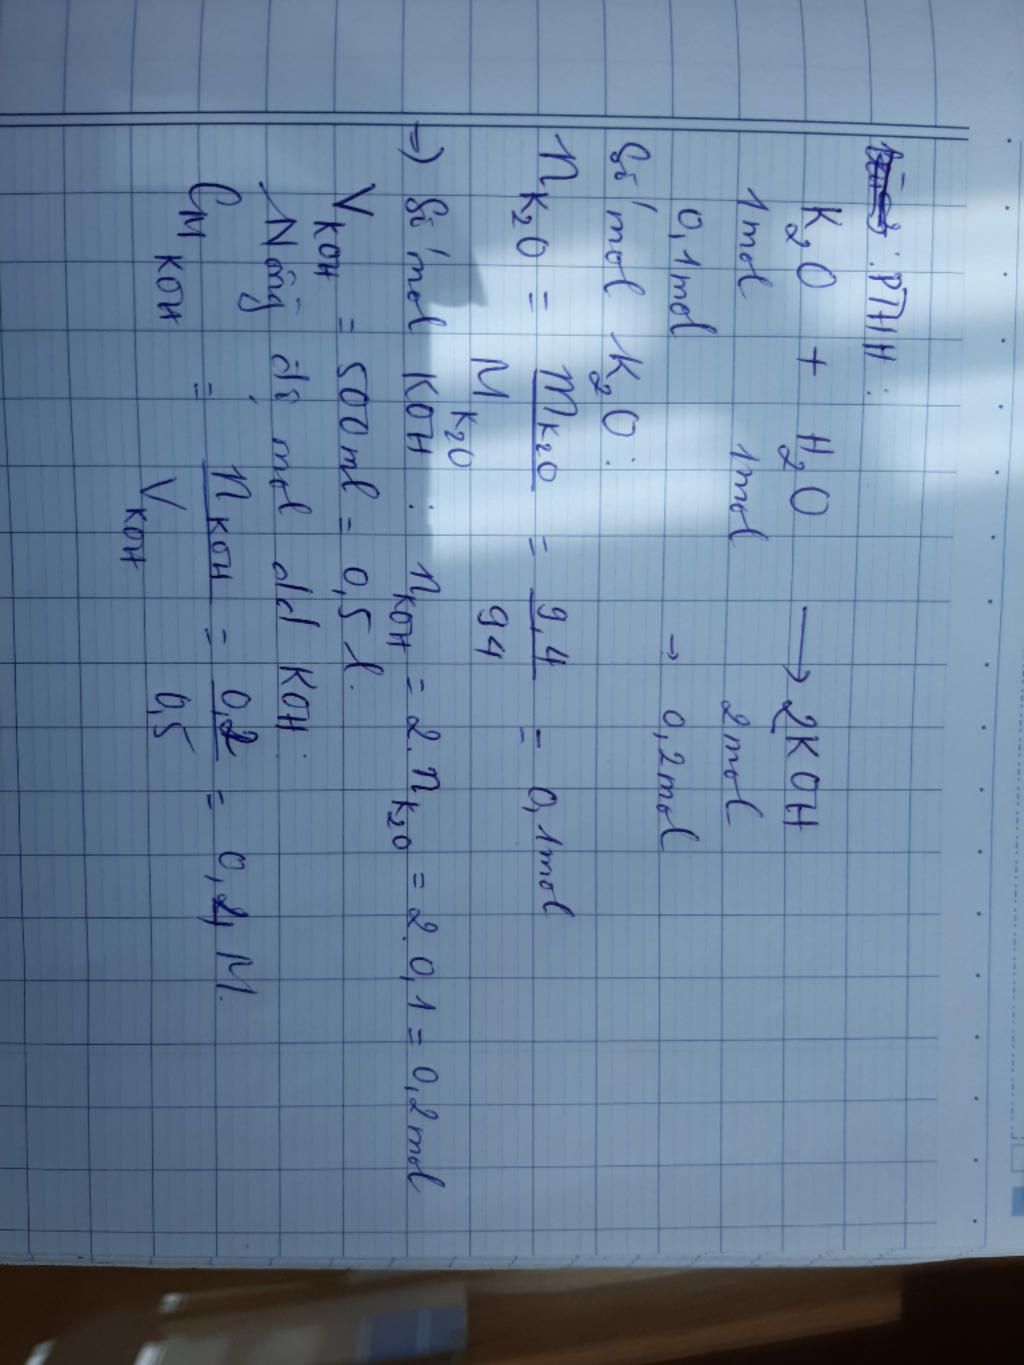 : PTHH:
K₂O + H₂O ⟶ 2KOH
1mol 1mol 2mol
0,1mol → 0,2mol
Số mol K₂O:
n K₂O = m K₂O / M K₂O = 9,4 / 94 = 0,1mol
=) Số mol KOH : n KOH = 2.n K₂O = 2.0,1 = 0,2mol
V KOH = 500ml = 0,5l.
Nồng độ mol dd KOH:
C M KOH = n KOH / V KOH = 0,2 / 0,5 = M.